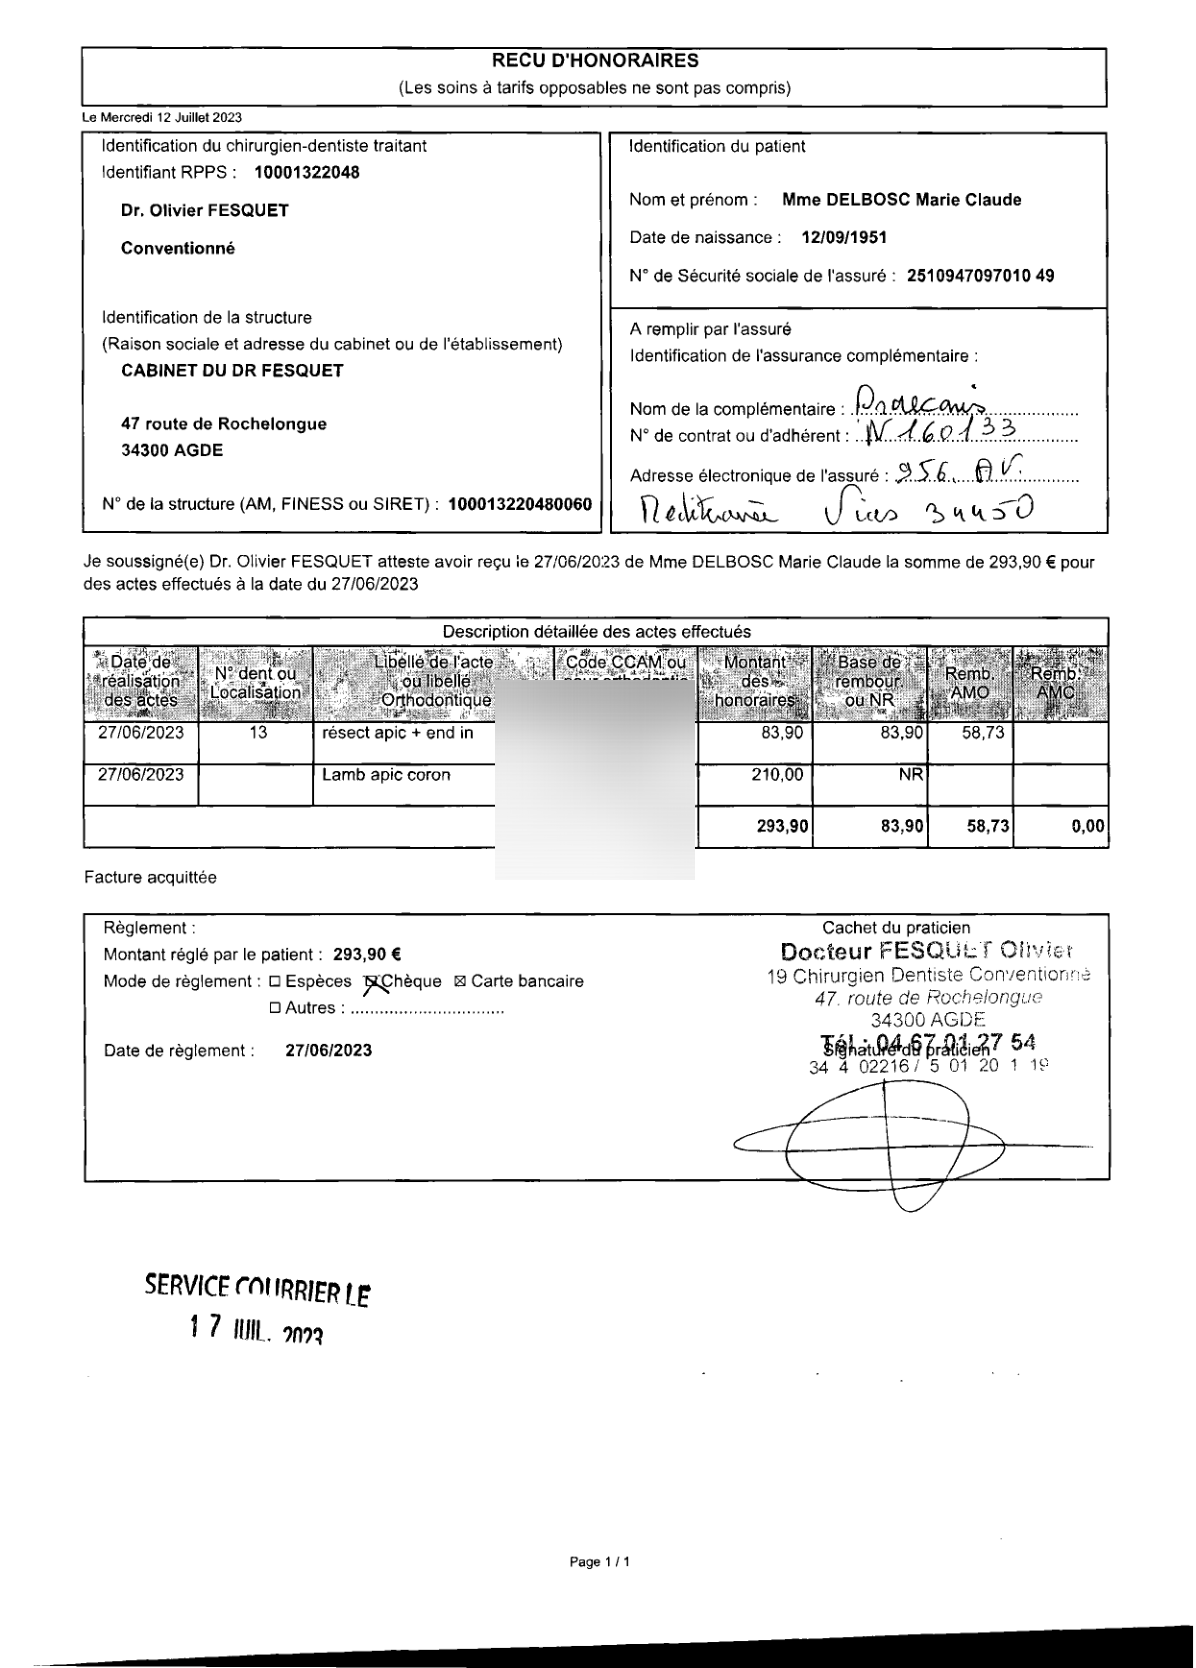 RECU D'HONORAIRES
(Les soins à tarifs opposables ne sont pas compris)
Le Mercredi 12 Juillet 2023
Identification du chirurgien-dentiste traitant
Identifiant RPPS : 10001322048
Dr. Olivier FESQUET
Conventionné
Identification de la structure
(Raison sociale et adresse du cabinet ou de l'établissement)
CABINET DU DR FESQUET
47 route de Rochelongue
34300 AGDE
N° de la structure (AM, FINESS ou SIRET) : 100013220480060
Identification du patient
Nom et prénom : Mme DELBOSC Marie Claude
Date de naissance : 12/09/1951
N° de Sécurité sociale de l'assuré : 2510947097010 49
A remplir par l'assuré
Identification de l'assurance complémentaire :
Nom de la complémentaire :
N° de contrat ou d'adhérent : N 160133
Adresse électronique de l'assuré : 956 AV.
Mediterranée Vias 34450
Je soussigné(e) Dr. Olivier FESQUET atteste avoir reçu le 27/06/2023 de Mme DELBOSC Marie Claude la somme de 293,90 € pour
des actes effectués à la date du 27/06/2023
Description détaillée des actes effectués
Date de réalisation des actes N° dent ou Localisation Libéllé de l'acte ou libellé Orthodontique Code CCAM ou Montant des honoraires Base de rembour. ou NR Remb. AMO Remb. AMC
27/06/2023 13 résect apic + end in 83,90 83,90 58,73
27/06/2023 Lamb apic coron 210,00 NR
293,90 83,90 58,73 0,00
Facture acquittée
Règlement :
Montant réglé par le patient : 293,90 €
Mode de règlement : ☐ Espèces ☒ Chèque ☒ Carte bancaire
☐ Autres : ................................
Date de règlement : 27/06/2023
Cachet du praticien
Docteur FESQUET Olivier
19 Chirurgien Dentiste Conventionné
47, route de Rochelongue
34300 AGDE
Tél : 04 67 01 27 54
Signature du praticien
34 4 02216 / 5 01 20 1 19
SERVICE COURRIER LE
17 JUIL. 2023
Page 1 / 1